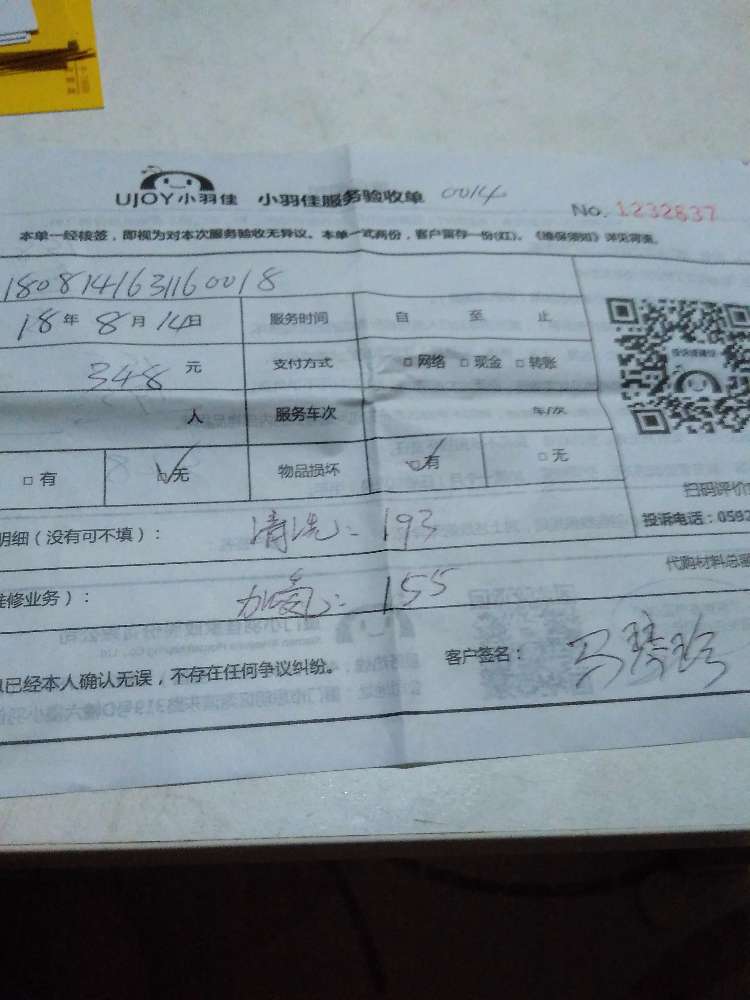 UJOY小羽佳 小羽佳服务验收单 0014
No. 1232637
本单一经接签，即视为对本次服务验收无异议。本单一式两份，客户留存一份(红)。《维保须知》详见背面。
1808141631160018
18年 8月 14日 服务时间 自 至 止
348 元 支付方式 □网络 □现金 □转账
人 服务车次 车/次
□有 □无 物品损坏 □有 □无
扫码评价
投诉电话：0592
明细（没有可不填）： 清洗：193
代购材料总
维修业务）： 加氟：155
以已经本人确认无误，不存在任何争议纠纷。 客户签名：